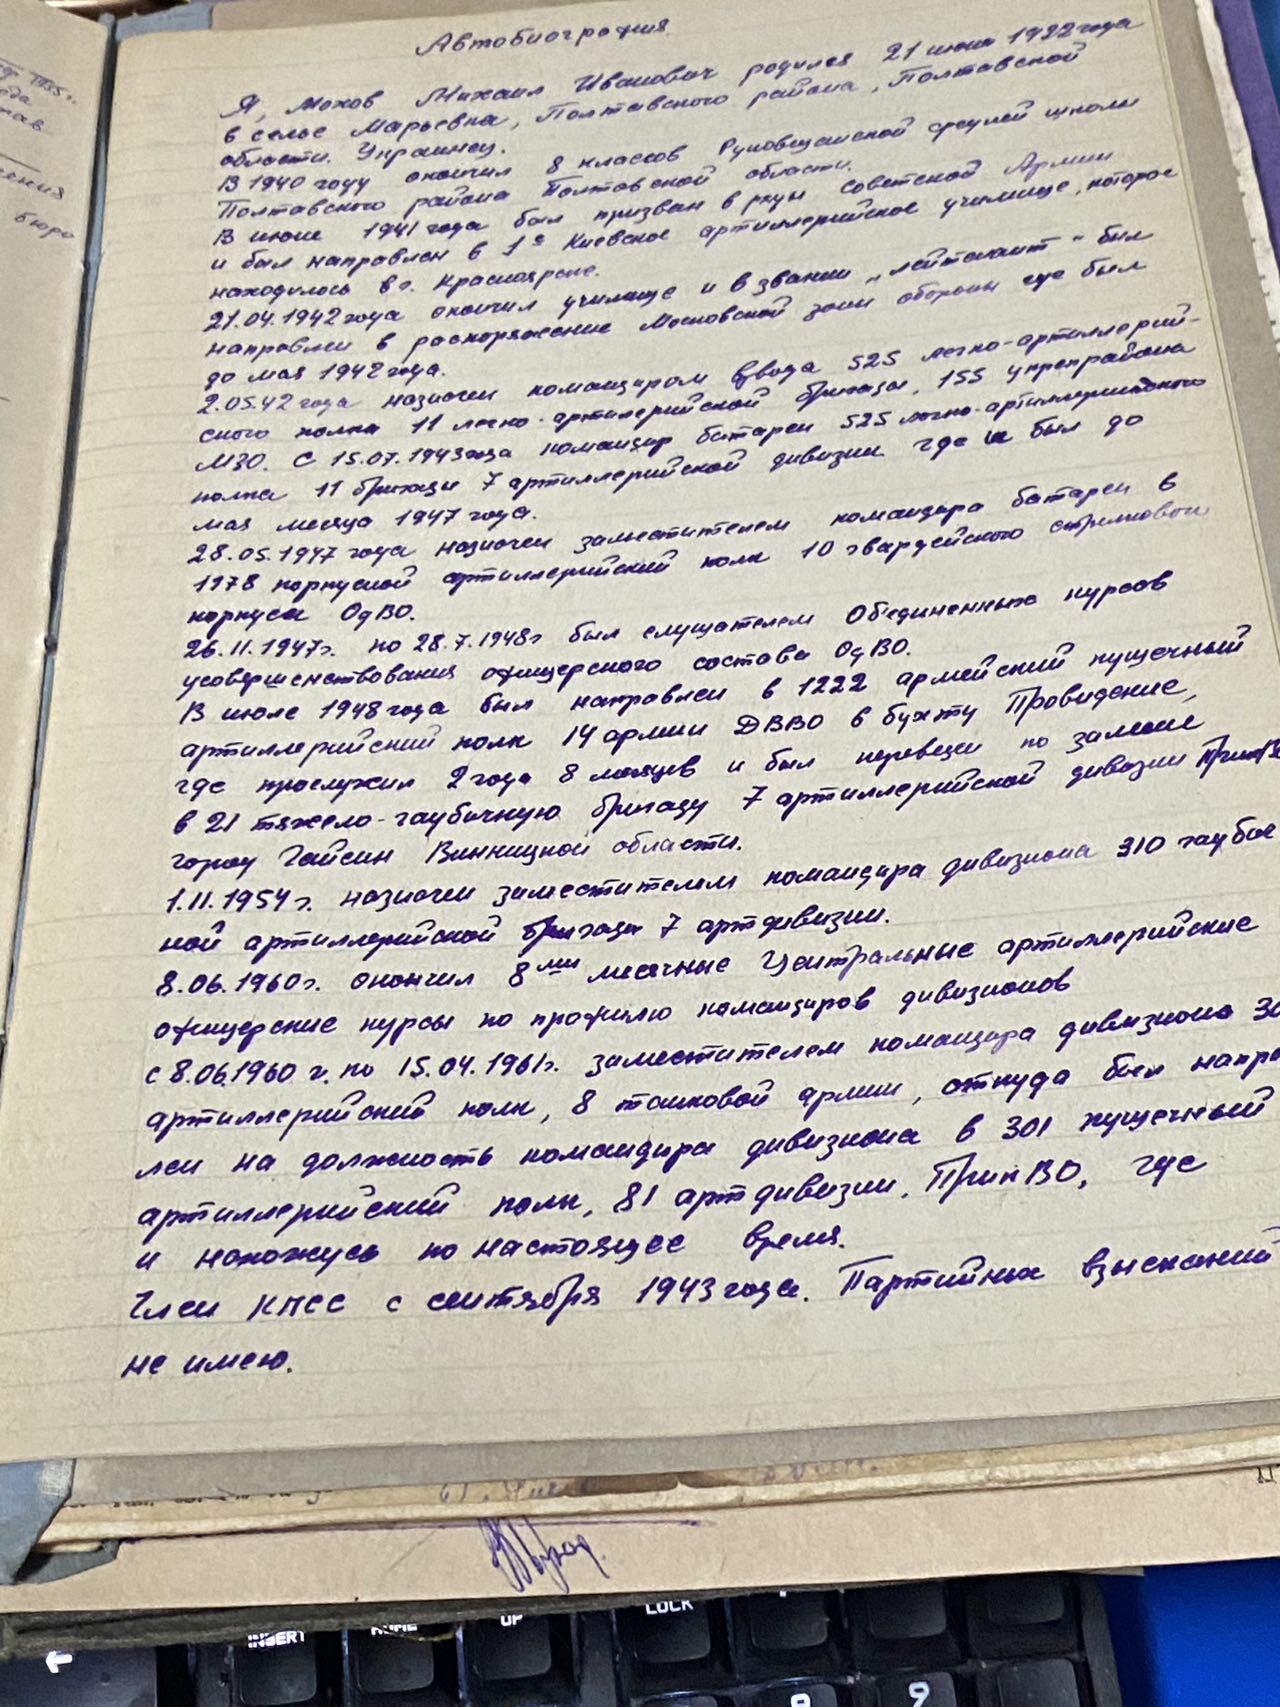 Автобиография.
Я, Мохов Михаил Иванович родился 21 июня 1922 года
в селье Марьевка, Полтавского района, Полтавской
области. Украинец.
В 1940 году окончил 8 классов Руновщанской средней школы
Полтавского района Полтавской области.
В июне 1941 года был призван в ряды Советской Армии
и был направлен в 1е Киевское артиллерийское училище, которое
находилось в г. Красноярске.
21.04.1942 года окончил училище и в звании „лейтенант" был
направлен в распоряжение Московской зоны обороны где был
до мая 1942 года.
2.05.42 года назначен командиром взвода 525 легко-артиллерий-
ского полка 11 легко-артилерийской бригады, 155 укрепрайона
МЗО. С 15.07.1943 года командир батареи 525 легко-артиллерийского
полка 11 бригады 7 артиллерийской дивизии где и был до
мая месяца 1947 года.
28.05.1947 года назначен заместителем командира батареи в
1978 корпусной артиллерийский полк 10 гвардейского стрелковой
корпуса ОдВО.
26.11.1947г. по 28.7.1948г был слушателем Объединенных курсов
усовершенствования офицерского состава ОдВО.
В июле 1948 года был направлен в 1222 армейский пушечный
артиллерийский полк 14 армии ДВВО в бухту Провидение,
где прослужил 2 года 8 месяцев и был переведен по замене
в 21 тяжело-гаубичную бригаду 7 артиллерийской дивизии
город Гайсин Винницкой области.
1.11.1954г. назначен заместителем командира дивизиона 310 гаубич
ной артиллерийской бригады 7 артдивизии.
8.06.1960г. окончил 8ми месячные Центральные артиллерийские
офицерские курсы по профилю командиров дивизионов
с 8.06.1960 г. по 15.04.1961г. заместителем командира дивизиона
артиллерийский полк, 8 танковой армии, откуда был направ
лен на должность командира дивизиона в 301 пушечный
артиллерийский полк, 81 артдивизии, ПрикВО, где
и нахожусь по настоящее время.
Член КПСС с сентября 1943 года. Партийных взысканий
не имею.
INSERT
HOME
UP
LOCK
9